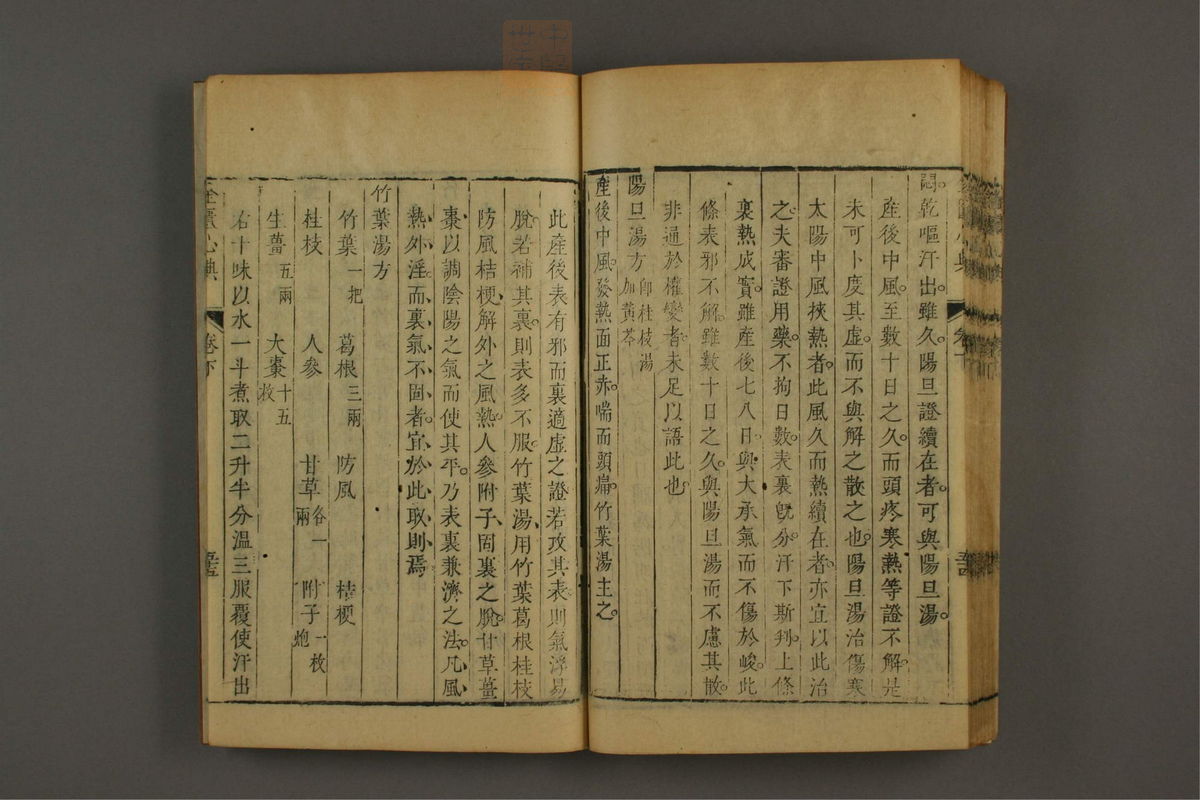 悶乾嘔汗出雖久陽旦證續在者可與陽旦湯
產後中風至數十日之久而頭疼寒熱等證不解是
未可卜度其虛而不與解之散之也陽旦湯治傷寒
太陽中風挾熱者此風久而熱續在者亦宜以此治
之夫審證用藥不拘日數表裏旣分汗下斯判上條
裏熱成實雖產後七八日與大承氣而不傷於峻此
條表邪不解雖數十日之久與陽旦湯而不慮其散
非通於權變者未足以語此也
陽旦湯方 卽桂枝湯加黃芩
產後中風發熱面正赤喘而頭痛竹葉湯主之
此產後表有邪而裏適虛之證若攻其表則氣浮易
脫若補其裏則表多不服竹葉湯用竹葉葛根桂枝
防風桔梗解外之風熱人參附子固裏之脫甘草薑
棗以調陰陽之氣而使其平乃表裏兼濟之法凡風
熱外淫而裏氣不固者宜於此取則焉
竹葉湯方
竹葉一把 葛根三兩 防風 桔梗
桂枝 人參 甘草各一兩 附子一枚炮
生薑五兩 大棗十五枚
右十味以水一斗煮取二升半分溫三服覆使汗出
金匱心典 卷下